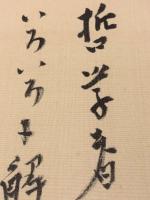 哲学者
いろいろに解